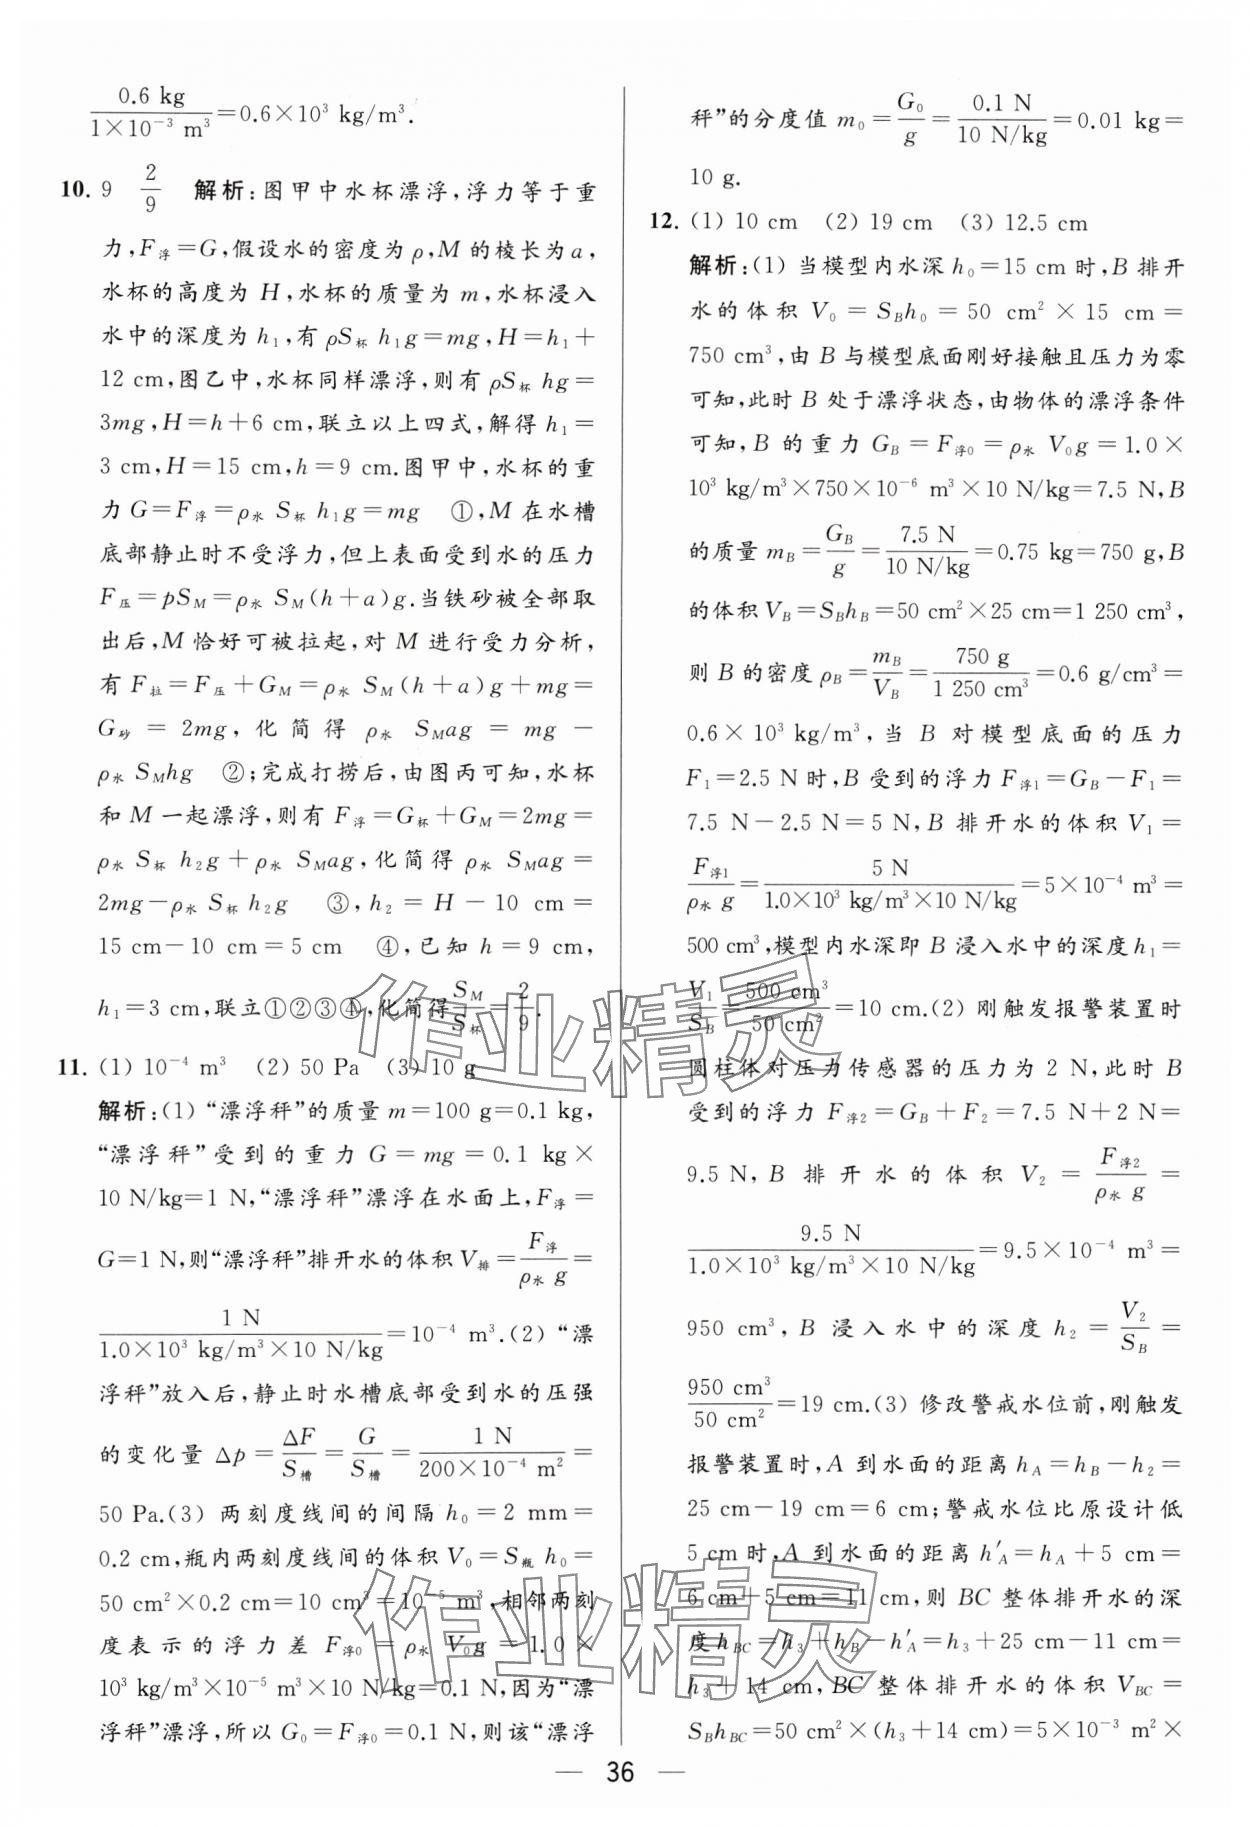 0.6 kg/(1×10⁻³ m³)=0.6×10³ kg/m³.
10. 9　2/9　解析:图甲中水杯漂浮,浮力等于重
力,F浮=G,假设水的密度为ρ,M 的棱长为a,
水杯的高度为 H,水杯的质量为 m,水杯浸入
水中的深度为 h₁,有 ρS杯 h₁g=mg,H=h₁+
12 cm,图乙中,水杯同样漂浮,则有 ρS杯 hg=
3mg,H=h+6 cm,联立以上四式,解得 h₁=
3 cm,H=15 cm,h=9 cm.图甲中,水杯的重
力 G=F浮=ρ水 S杯 h₁g=mg　①,M 在水槽
底部静止时不受浮力,但上表面受到水的压力
F压=pS_M=ρ水 S_M(h+a)g.当铁砂被全部取
出后,M 恰好可被拉起,对 M 进行受力分析,
有 F拉=F压+G_M=ρ水 S_M(h+a)g+mg=
G砂=2mg,化简得 ρ水 S_Mag=mg-
ρ水 S_Mhg　②;完成打捞后,由图丙可知,水杯
和 M 一起漂浮,则有 F浮=G杯+G_M=2mg=
ρ水 S杯 h₂g+ρ水 S_Mag,化简得 ρ水 S_Mag=
2mg-ρ水 S杯 h₂g　③,h₂=H-10 cm=
15 cm-10 cm=5 cm　④,已知 h=9 cm,
h₁=3 cm,联立①②③④,化简得 S_M/S杯=2/9.
11. (1) 10⁻⁴ m³　(2) 50 Pa　(3) 10 g
解析:(1) “漂浮秤”的质量 m=100 g=0.1 kg,
“漂浮秤”受到的重力 G=mg=0.1 kg×
10 N/kg=1 N,“漂浮秤”漂浮在水面上,F浮=
G=1 N,则“漂浮秤”排开水的体积 V排=F浮/(ρ水 g)=
1 N/(1.0×10³ kg/m³×10 N/kg)=10⁻⁴ m³.(2) “漂
浮秤”放入后,静止时水槽底部受到水的压强
的变化量 Δp=ΔF/S槽=G/S槽=1 N/(200×10⁻⁴ m²)=
50 Pa.(3) 两刻度线间的间隔 h₀=2 mm=
0.2 cm,瓶内两刻度线间的体积 V₀=S瓶 h₀=
50 cm²×0.2 cm=10 cm³=10⁻⁵ m³,相邻两刻
度表示的浮力差 F浮0=ρ水 V₀g=1.0×
10³ kg/m³×10⁻⁵ m³×10 N/kg=0.1 N,因为“漂
浮秤”漂浮,所以 G₀=F浮0=0.1 N,则该“漂浮
秤”的分度值 m₀=G₀/g=0.1 N/(10 N/kg)=0.01 kg=
10 g.
12. (1) 10 cm　(2) 19 cm　(3) 12.5 cm
解析:(1) 当模型内水深 h₀=15 cm 时,B 排开
水的体积 V₀=S_Bh₀=50 cm²×15 cm=
750 cm³,由 B 与模型底面刚好接触且压力为零
可知,此时 B 处于漂浮状态,由物体的漂浮条件
可知,B 的重力 G_B=F浮0=ρ水 V₀g=1.0×
10³ kg/m³×750×10⁻⁶ m³×10 N/kg=7.5 N,B
的质量 m_B=G_B/g=7.5 N/(10 N/kg)=0.75 kg=750 g,B
的体积 V_B=S_Bh_B=50 cm²×25 cm=1 250 cm³,
则 B 的密度 ρ_B=m_B/V_B=750 g/(1 250 cm³)=0.6 g/cm³=
0.6×10³ kg/m³,当 B 对模型底面的压力
F₁=2.5 N 时,B 受到的浮力 F浮1=G_B-F₁=
7.5 N-2.5 N=5 N,B 排开水的体积 V₁=
F浮1/(ρ水 g)=5 N/(1.0×10³ kg/m³×10 N/kg)=5×10⁻⁴ m³=
500 cm³,模型内水深即 B 浸入水中的深度 h₁=
V₁/S_B=500 cm³/(50 cm²)=10 cm.(2) 刚触发报警装置时
圆柱体对压力传感器的压力为 2 N,此时 B
受到的浮力 F浮2=G_B+F₂=7.5 N+2 N=
9.5 N,B 排开水的体积 V₂=F浮2/(ρ水 g)=
9.5 N/(1.0×10³ kg/m³×10 N/kg)=9.5×10⁻⁴ m³=
950 cm³,B 浸入水中的深度 h₂=V₂/S_B=
950 cm³/(50 cm²)=19 cm.(3) 修改警戒水位前,刚触发
报警装置时,A 到水面的距离 h_A=h_B-h₂=
25 cm-19 cm=6 cm;警戒水位比原设计低
5 cm 时,A 到水面的距离 h′_A=h_A+5 cm=
6 cm+5 cm=11 cm,则 BC 整体排开水的深
度 h_BC=h₃+h_B-h′_A=h₃+25 cm-11 cm=
h₃+14 cm,BC 整体排开水的体积 V_BC=
S_Bh_BC=50 cm²×(h₃+14 cm)=5×10⁻³ m²×
36
作业精灵
作业精灵